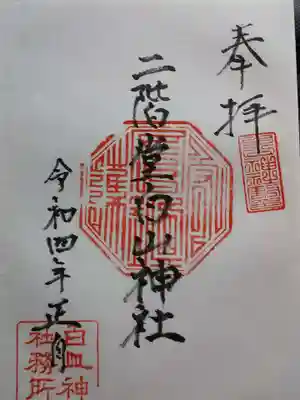 奉拝
二階堂白山神社
令和四年正月
白山神
社務所